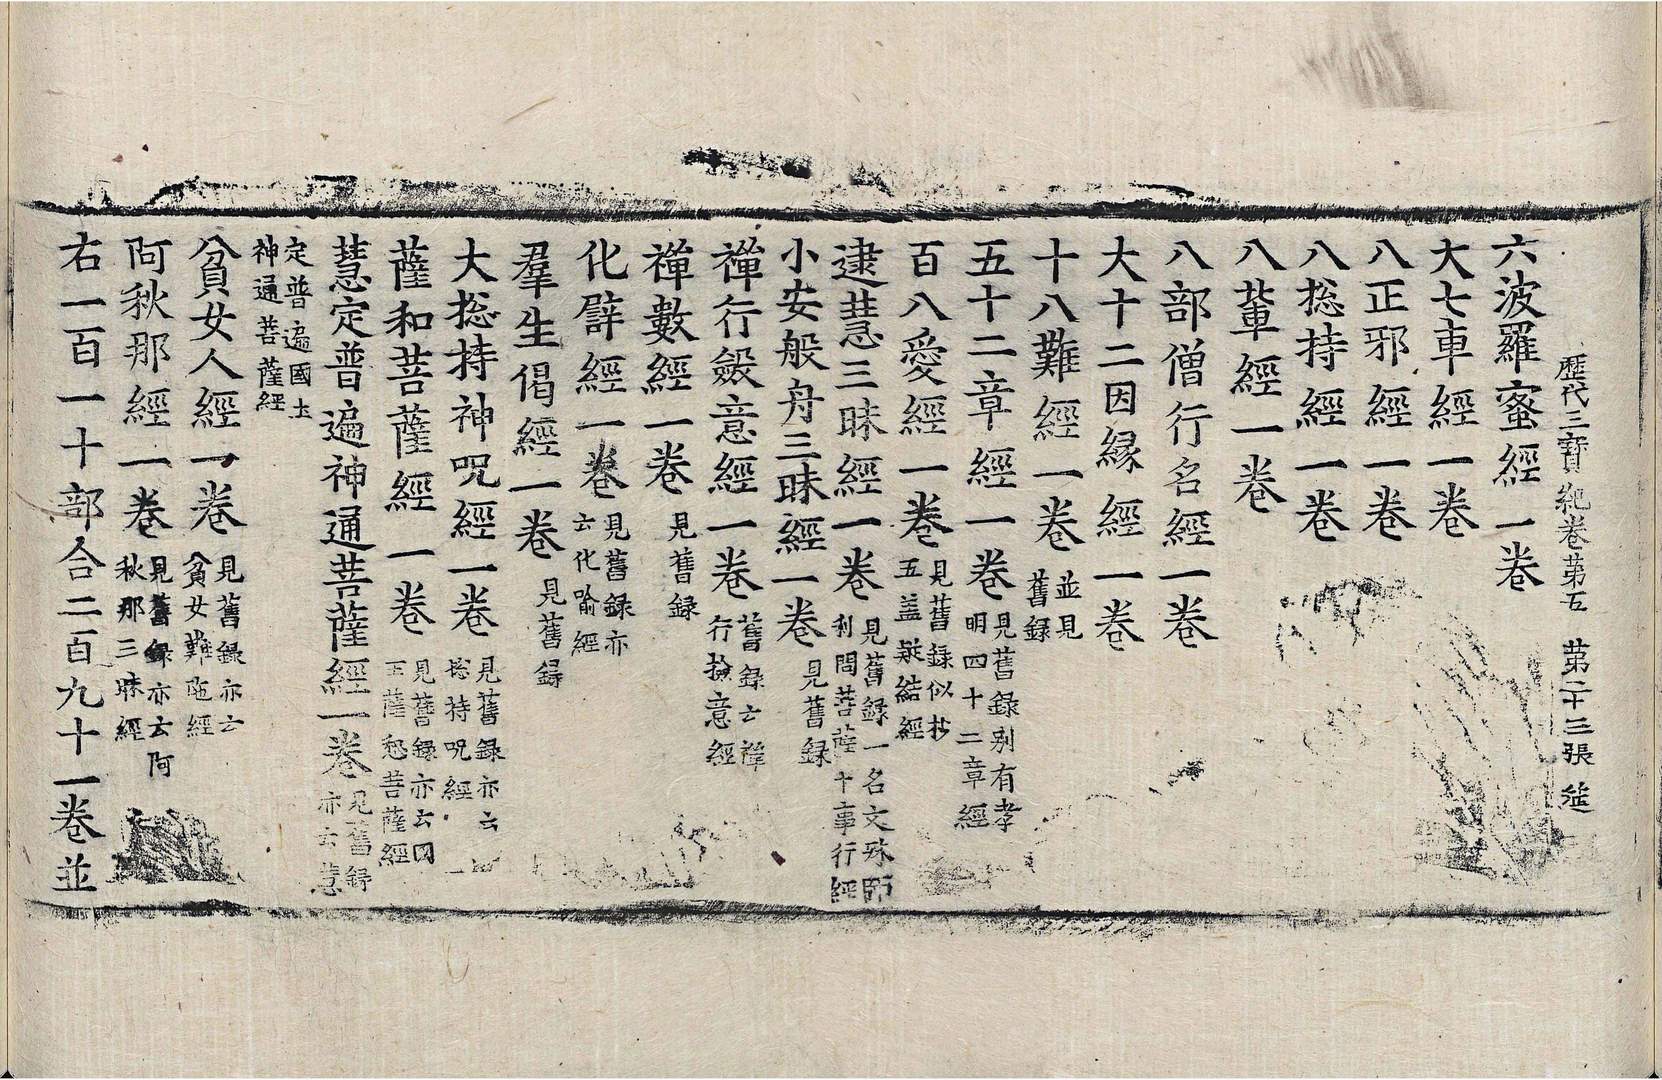 歷代三寶紀卷第五 第二十三張 筵
六波羅蜜經一卷
大七車經一卷
八正邪經一卷
八捴持經一卷
八輩經一卷
八部僧行名經一卷
大十二因縁經一卷
十八難經一卷 並見
舊録
五十二章經一卷 見舊録别有孝
明四十二章經
百八愛經一卷 見舊録似抄
五盖疑結經
逮慧三昧經一卷 見舊録一名文殊師
利問菩薩十事行經
小安般舟三昧經一卷 見舊録
禪行斂意經一卷 舊録云禪
行撿意經
禪數經一卷 見舊録
化譬經一卷 見舊録亦
云化喻經
羣生偈經一卷 見舊録
大捴持神呪經一卷 見舊録亦云
捴持呪經
薩和菩薩經一卷 見舊録亦云國
王薩惒菩薩經
慧定普遍神通菩薩經一卷 見舊録
亦云慧
定普遍國土
神通菩薩經
貧女人經一卷 見舊録亦云
貧女難陁經
阿秋那經一卷 見舊録亦云阿
秋那三昧經
右一百一十部合二百九十一卷並